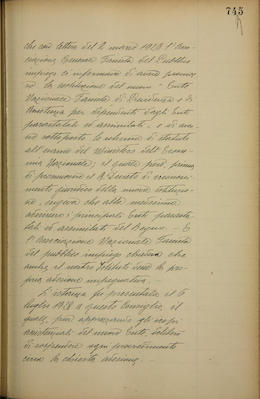 745
che con lettera del 2 marzo 1928 l'Asso-
ciazione Generale Fascista del Pubblico
impiego ci informava di avere promos-
so la costituzione del nuovo "Ente
Nazionale Fascista di Previdenza e di
Assistenza per dipendenti dagli Enti
parastatali ed assimilati", e di aver
sottoposto lo schema di statuto
all'esame del Ministero dell'Econo-
mia Nazionale; il quale però, prima
di promuovere il R. Decreto di riconosci-
mento giuridico della nuova istituzio-
ne, voleva che alla medesima
aderissero i principali Enti parasta-
tali ed assimilati del Regno. - E
l'Associazione Nazionale Fascista
del pubblico impiego chiedeva che
anche il nostro Istituto desse la pro-
pria adesione impegnativa. -
La richiesta fu presentata il 6
luglio 1928 a questo Consiglio, il
quale, pur apprezzando gli scopi
assistenziali del nuovo Ente, deliberò
di sospendere ogni provvedimento
circa la chiesta adesione. -